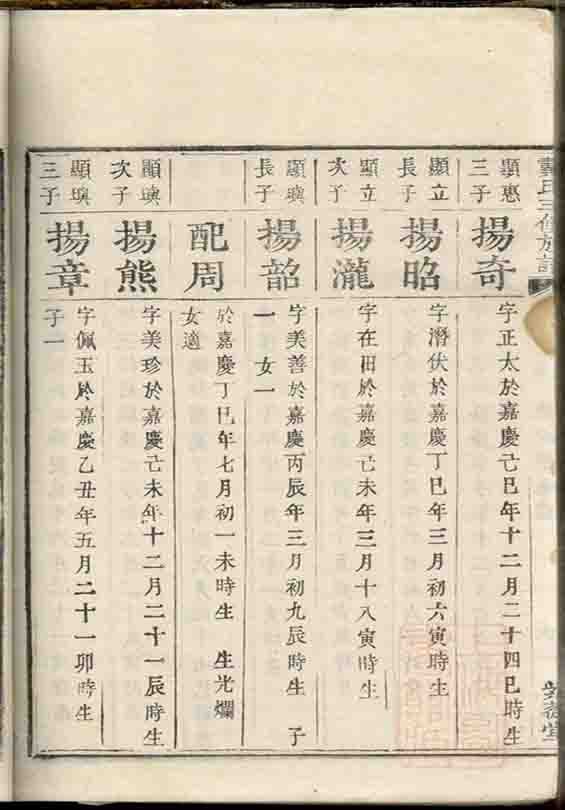 戴氏三修族譜
顯惠
三子
揚奇
字正太於嘉慶己巳年十二月二十四巳時生
顯立
長子
揚昭
字潛伏於嘉慶丁巳年三月初六寅時生
顯立
次子
揚瀧
字在田於嘉慶己未年三月十八寅時生
顯璵
長子
揚韶
字美善於嘉慶丙辰年三月初九辰時生 子
一 女一
配周
於嘉慶丁巳年七月初一未時生 生光爛
女適
顯璵
次子
揚熊
字美珍於嘉慶己未年十二月二十一辰時生
顯璵
三子
揚章
字佩玉於嘉慶乙丑年五月二十一卯時生
子一